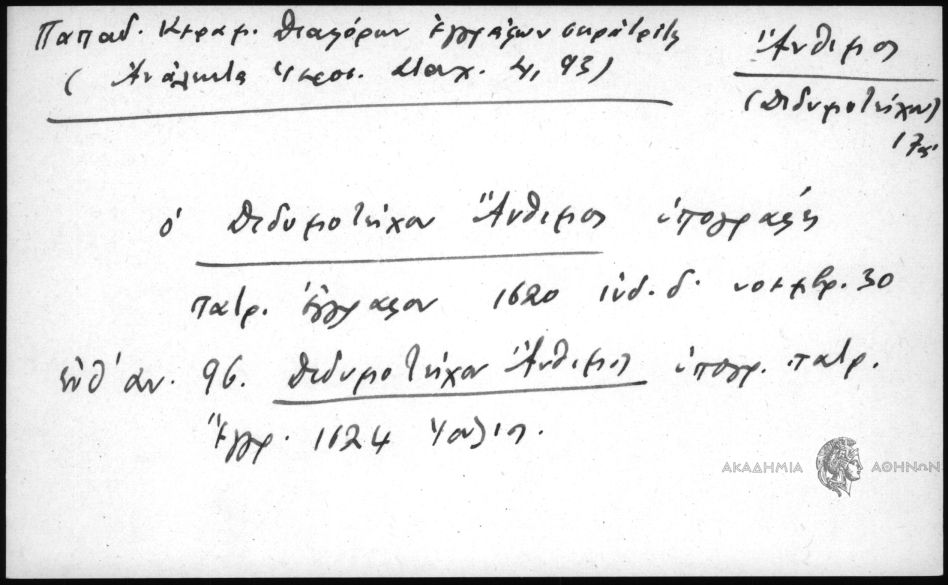 Παπαδ. Κεραμ. Διαφόρων ἐγγράφων
(Ἀνάλεκτα Ἱεροσ. Σταχ. 4, 93)
Ἄνθιμος
(Διδυμοτείχου)
17ος
ὁ Διδυμοτείχου Ἄνθιμος ὑπογραφεὺς
πατρ. ἐγγράφου 1620 ἰνδ. δ. νοεμβρ. 30
αὐθ' αν. 96. Διδυμοτείχου Ἄνθιμος ὑπογρ. πατρ.
ἔγγρ. 1624 Ἰούλιος.
ΑΚΑΔΗΜΙΑ ΑΘΗΝΩΝ